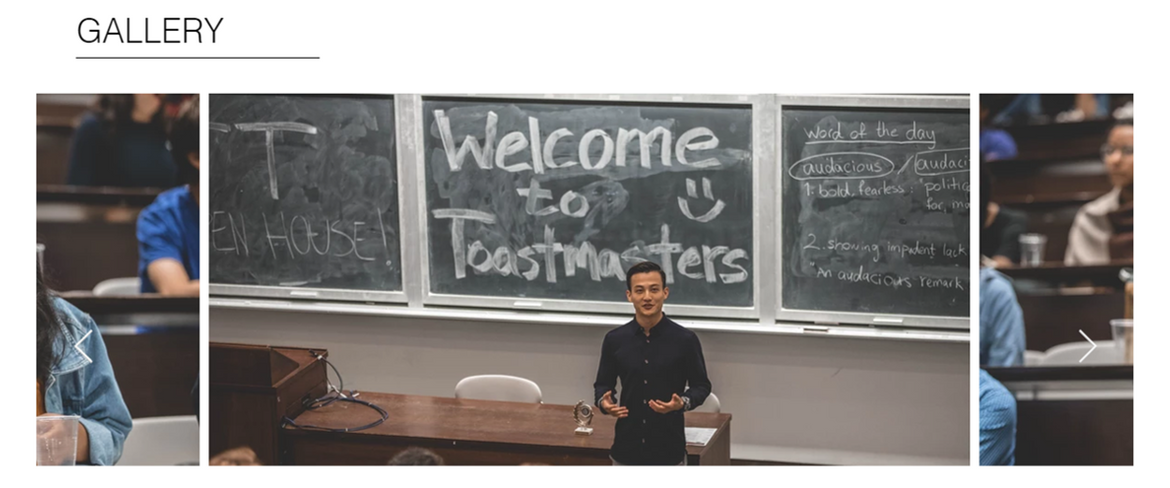 GALLERY
T
EN HOUSE!
Welcome
to
Toastmasters
Word of the day
audacious / audaci
1. bold, fearless: "politic
for, m
2. showing impudent lack
"An audacious remark